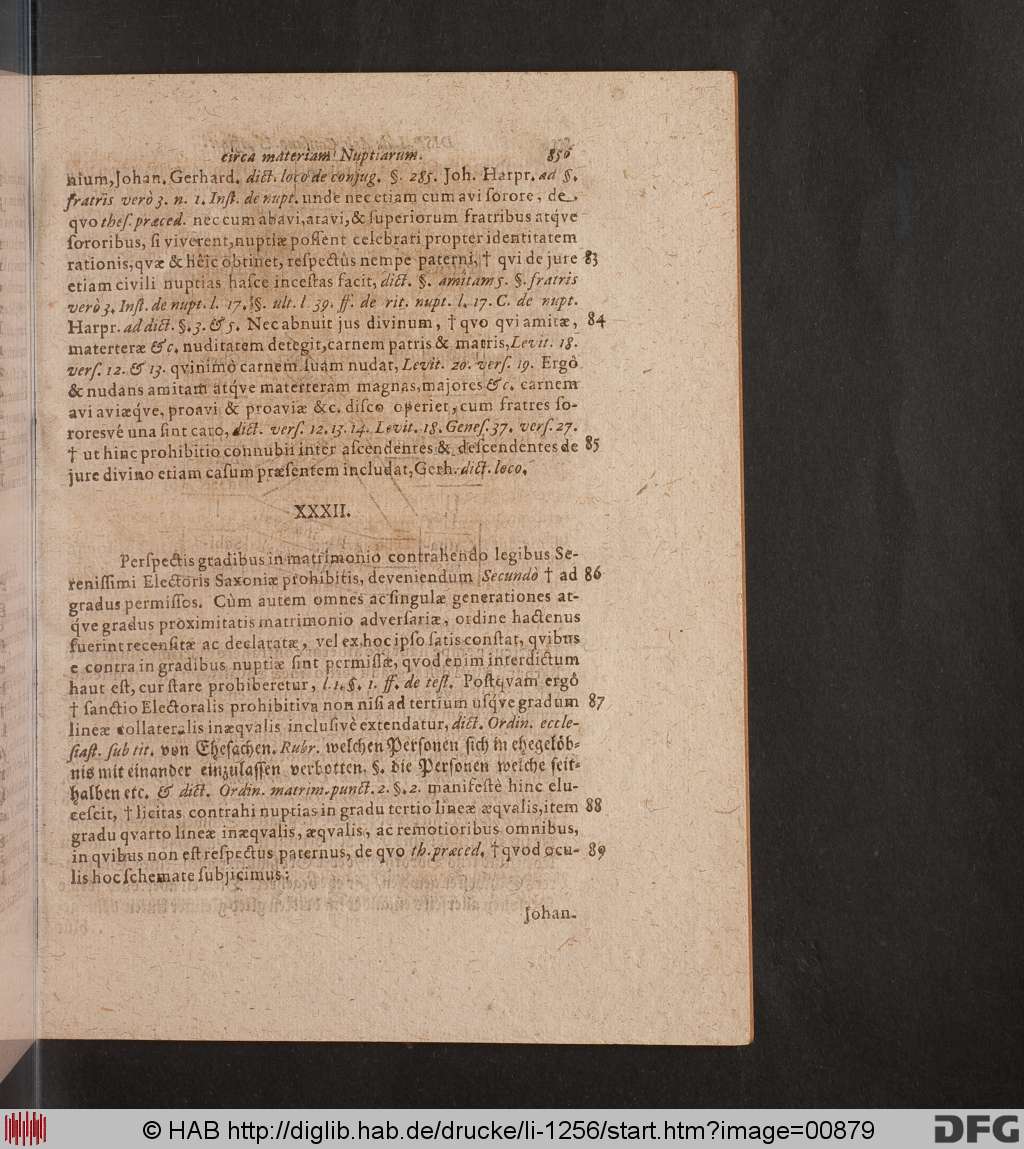 circa materiam Nuptiarum. 850
nium, Johan. Gerhard. dict. loco de conjug. §. 285. Joh. Harpr. ad §.
fratris verò 3. n. 1. Inst. de nupt. unde nec etiam cum avi sorore, de
qvo thes. præced. nec cum abavi, atavi, & superiorum fratribus atq́ve
sororibus, si viverent, nuptiæ possent celebrari propter identitatem
rationis, qvæ & hêic obtinet, respectûs nempe paterni, † qvi de jure 83
etiam civili nuptias hasce incestas facit, dict. §. amitam 5. §. fratris
verò 3. Inst. de nupt. l. 17. §. ult. l 39. ff. de rit. nupt. l. 17. C. de nupt.
Harpr. ad dict. §. 3. & 5. Nec abnuit jus divinum, † qvo qvi amitæ, 84
materteræ &c. nuditatem detegit, carnem patris & matris, Levit. 18.
vers. 12. & 13. qvinimò carnem suam nudat, Levit. 20. vers. 19. Ergô
& nudans amitam atqve materteram magnas, majores &c. carnem
avi aviæqve, proavi & proaviæ &c. disco operiet, cum fratres so-
roresvé una sint caro, dict. vers. 12. 13. 14. Levit. 18. Genes. 37. vers. 27.
† ut hinc prohibitio connubii inter ascendentes & descendentes de 85
jure divino etiam casum præsentem includat, Gerh. dict. loco.
XXXII.
Perspectis gradibus in matrimonio contrahendo legibus Se-
renissimi Electoris Saxoniæ prohibitis, deveniendum Secundò † ad 86
gradus permissos. Cùm autem omnes ac singulæ generationes at-
q́ve gradus proximitatis matrimonio adversariæ, ordine hactenus
fuerint recensitæ ac declaratæ, vel ex hoc ipso satis constat, qvibus
e contra in gradibus nuptiæ sint permissæ, qvod enim interdictum
haut est, cur stare prohiberetur, l. 1. §. 1. ff. de test. Postqvam ergô
† sanctio Electoralis prohibitiva non nisi ad tertium usq́ve gradum 87
lineæ collateralis inæqvalis inclusivè extendatur, dict. Ordin. eccle-
siast. sub tit. von Ehesachen. Rubr. welchen Personen sich in ehegelöb-
nis mit einander einzulassen verbotten. §. die Personen welche seit-
halben etc. & dict. Ordin. matrim. punct. 2. §. 2. manifestè hinc elu-
cescit, † licitas contrahi nuptias in gradu tertio lineæ æqvalis, item 88
gradu qvarto lineæ inæqvalis, æqvalis, ac remotioribus omnibus,
in qvibus non est respectus paternus, de qvo th. præced. † qvod ocu- 89
lis hoc schemate subjicimus:
Johan-
© HAB http://diglib.hab.de/drucke/li-1256/start.htm?image=00879
DFG